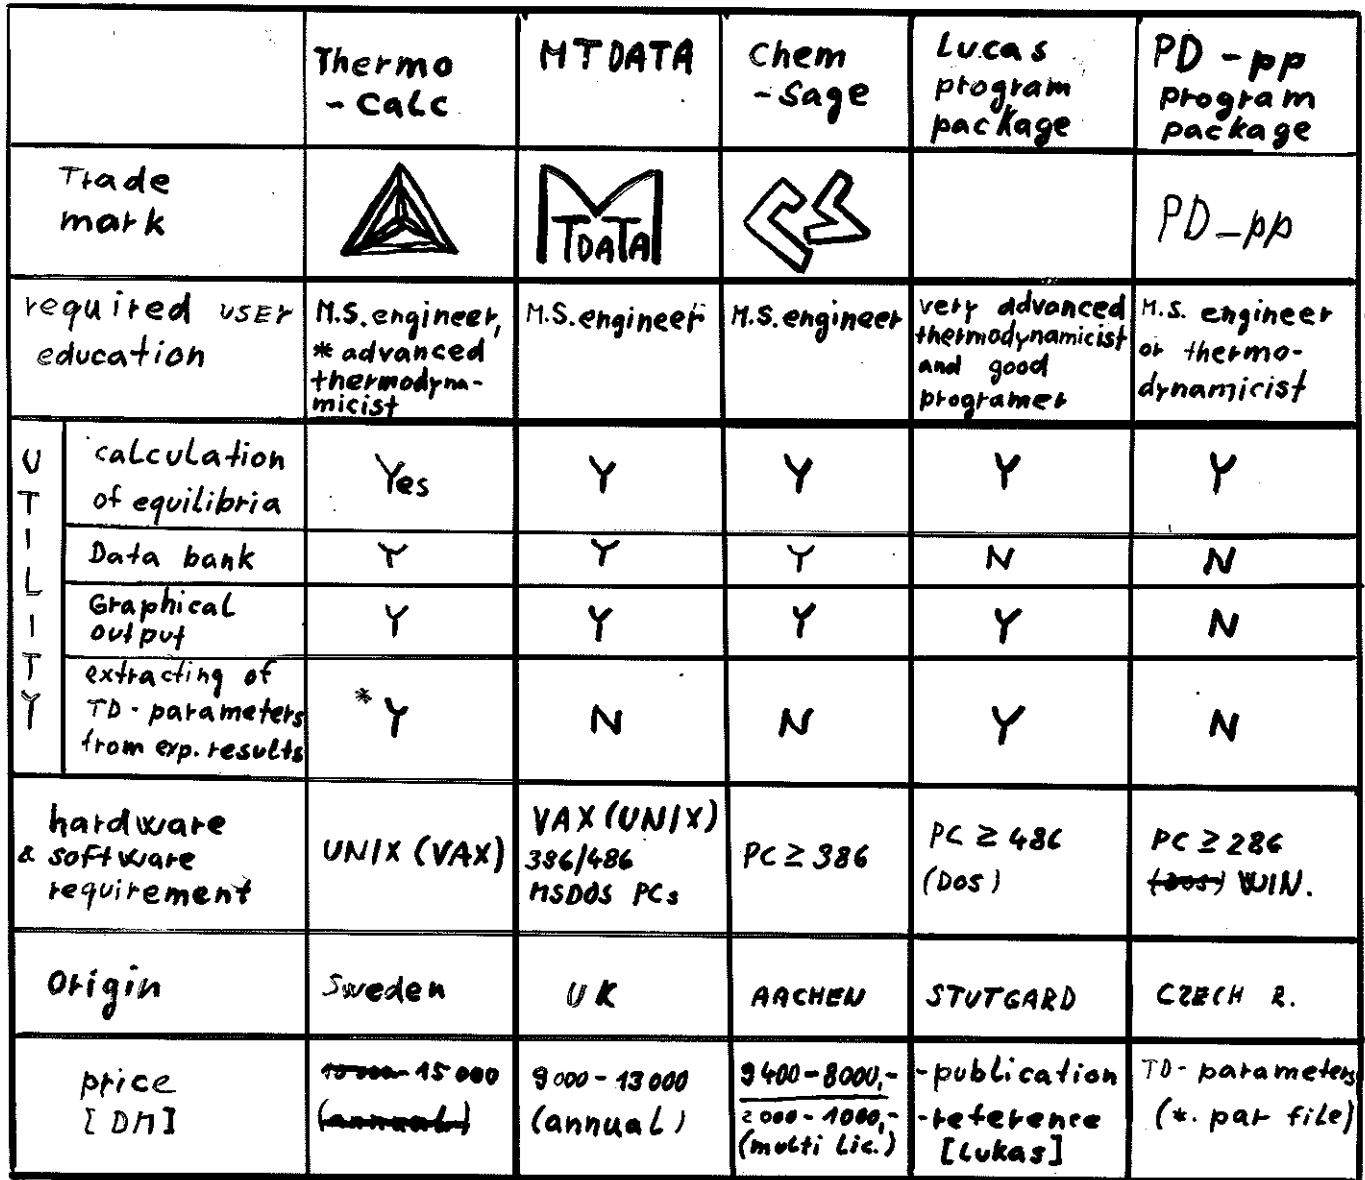 Thermo
- Calc
MTDATA
Chem
- Sage
Lucas
program
package
PD - pp
program
package
Trade
mark
MTDATA
CS
PD_pp
required USER
education
M.S. engineer,
* advanced
thermodyna-
micist
M.S. engineer
M.S. engineer
very advanced
thermodynamicist
and good
programer
M.S. engineer
or thermo-
dynamicist
UTILITY
calculation
of equilibria
Yes
Y
Y
Y
Y
Data bank
Y
Y
Y
N
N
Graphical
output
Y
Y
Y
Y
N
extracting of
TD - parameters
from exp. results
* Y
N
N
Y
N
hardware
& software
requirement
UNIX (VAX)
VAX (UNIX)
386/486
MSDOS PCs
PC ≥ 386
PC ≥ 486
(DOS)
PC ≥ 286
(DOS) WIN.
Origin
Sweden
UK
AACHEN
STUTGARD
CZECH R.
price
[DM]
15 000
(annual)
9000 - 13 000
(annual)
9400 - 8000,-
2000 - 1000,-
(multi Lic.)
- publication
- reference
[Lukas]
TD - parameters
(*. par file)